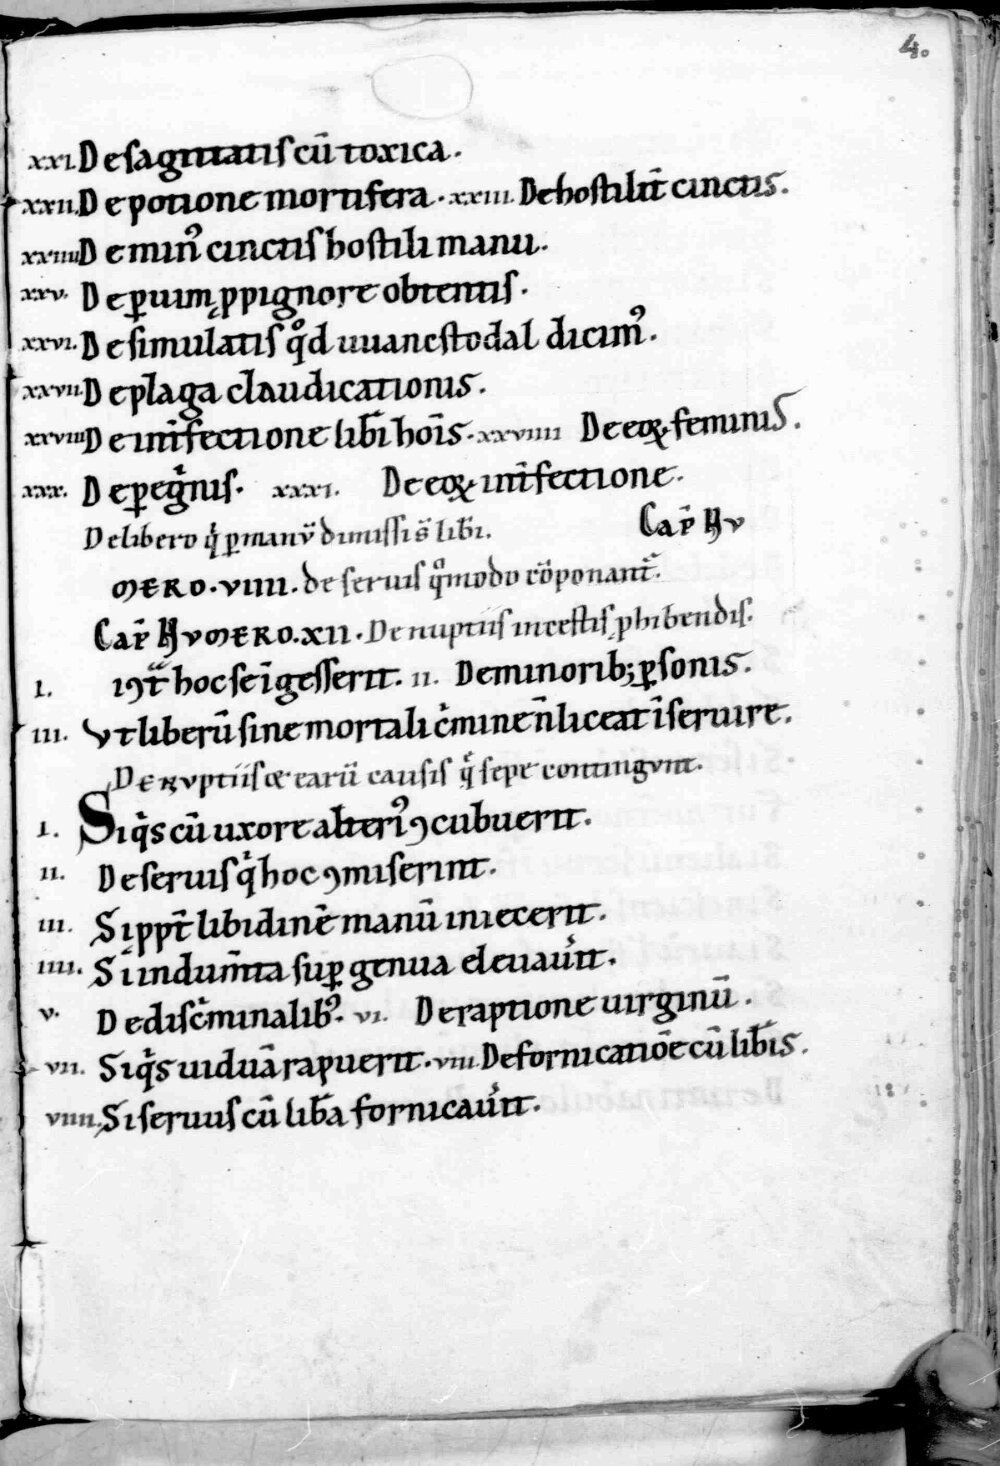 4.
xxi. De sagittatis cū toxica.
xxii. De potione mortifera. xxiii. De hostilit̄ cinctis.
xxiiii. De min᷒ cinctis hostili manu.
xxv. De ꝑuim ꝓpignore obtentis.
xxvi. De simulatis qͦd uuancstodal dicim᷒.
xxvii. De plaga claudicationis.
xxviii. De int̄fectione lib̄i hoīs. xxviiii De eoꝝ feminis.
xxx. De ꝑeg̾nis. xxxi. De eoꝝ int̄fectione.
De libero q̇ ꝑ manū dimissi s̄ lib̄i.
Cap̄ Nu
mero. viiii. de seruis qͦmodo cōponant᷑.
Cap̄ Numero. xii. De nuptiis incestis ꝓhibendis.
i. Inͭ hoc se īgesserit. ii. De minorib; ꝑsonis.
iii. Vt liberū sine mortali c̾mine n̄ liceat īseruire.
De nuptiis & earū causis q̄ sepe contingunt.
i. Siq̇s cū uxore alteri᷒ ꝯcubuerit.
ii. De seruis q̇ hoc ꝯmiserint.
iii. Si ꝓpt̄ libidinē manū iniecerit.
iiii. Si indum̄ta suꝑ genua eleuau̾it.
v. De disc̾minalib᷒. vi. De raptione uirginū.
vii. Siq̇s uiduā rapuerit. viii. De fornicatiōe cū lib̄is.
viiii. Si seruus cū lib̄a fornicau̾it.